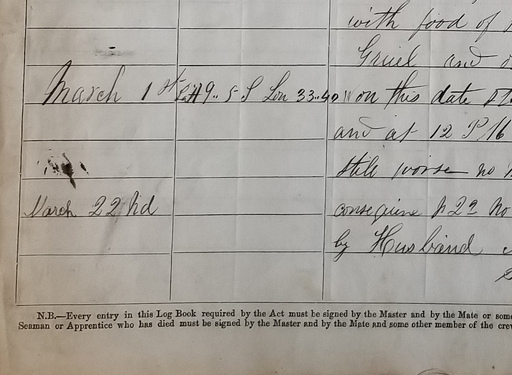 with food of
Gruel and
March 1st Lat 49..5 S Lon 33..40 W on this date
and at 12 P M
still worse no
March 22nd
by Husband
N.B.—Every entry in this Log Book required by the Act must be signed by the Master and by the Mate or some
Seaman or Apprentice who has died must be signed by the Master and by the Mate and some other member of the crew